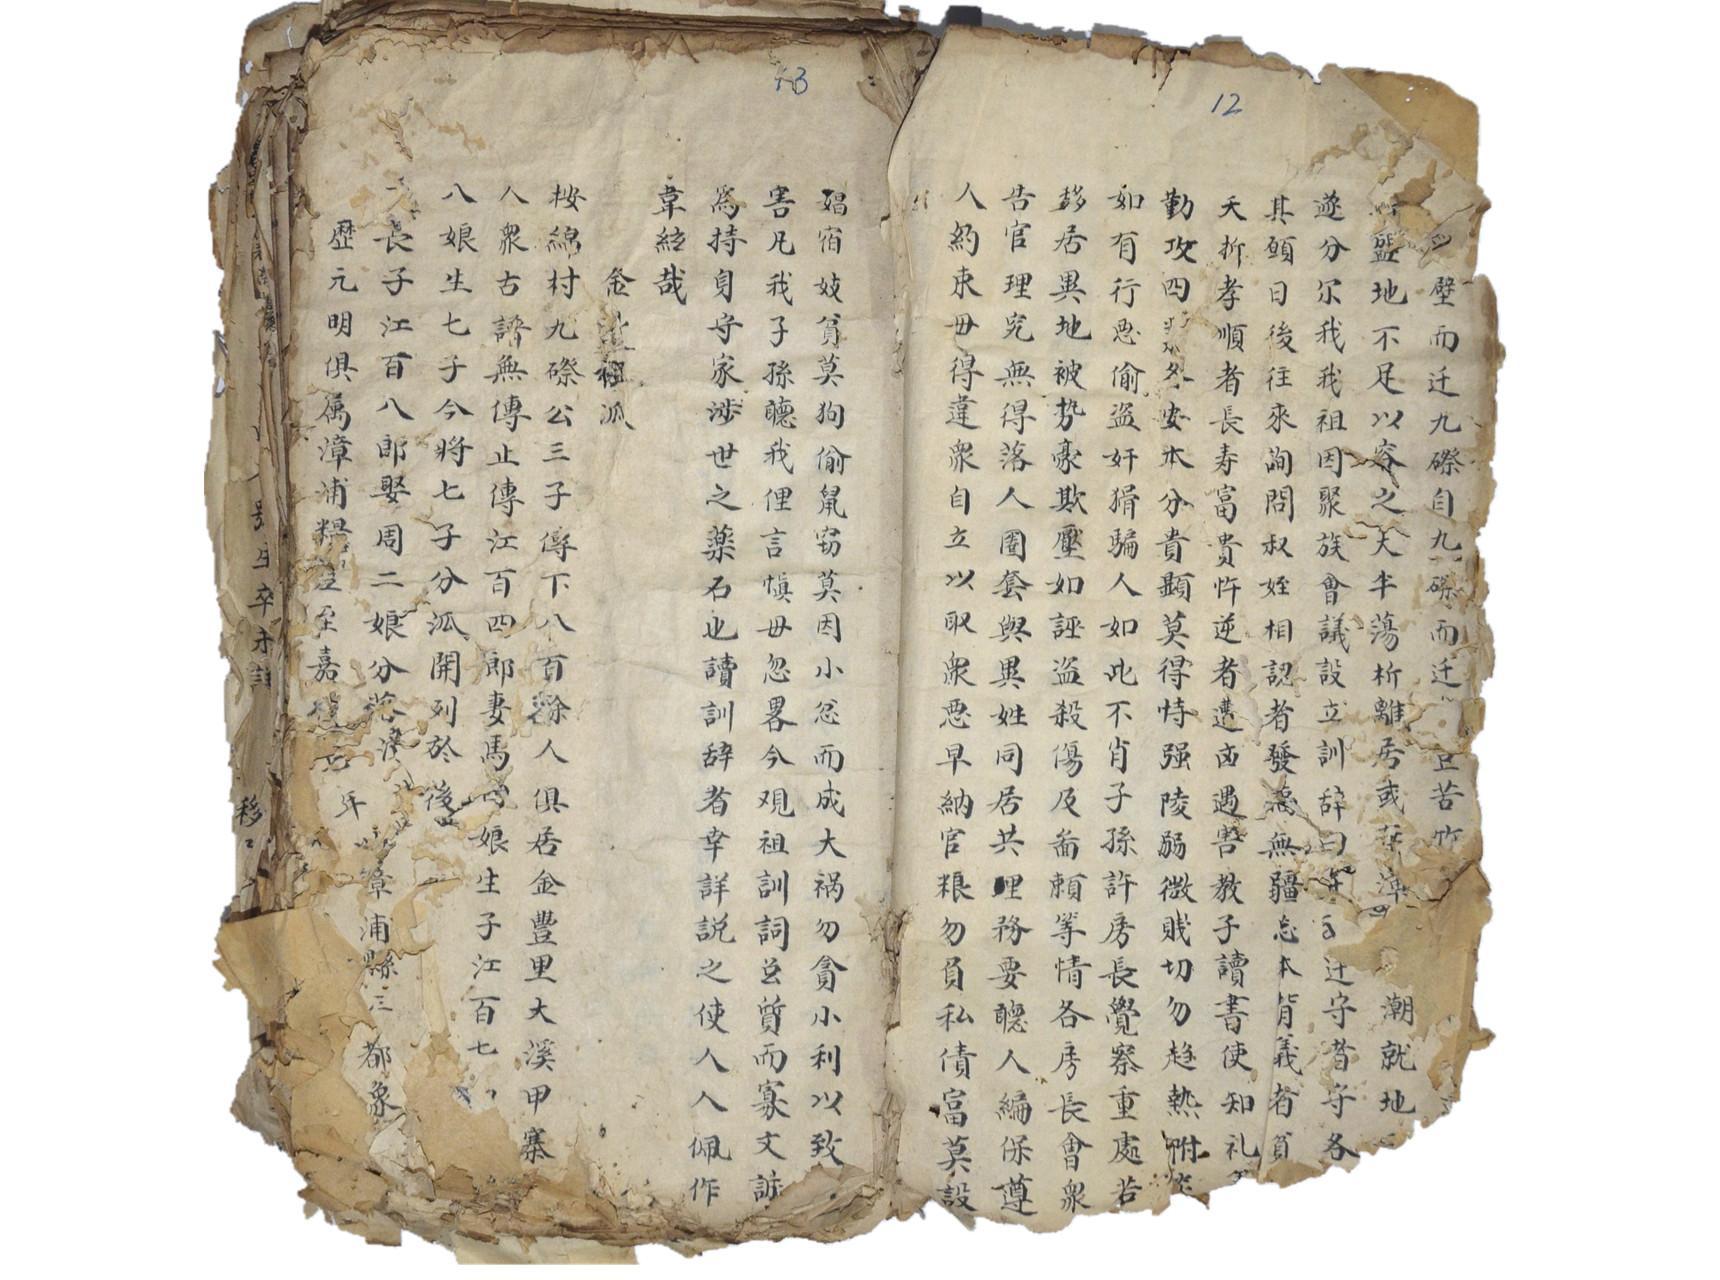 12
壁而迁九磜自九磜而迁豆苦竹
盤地不足以容之大半蕩析離居或潮就地
遂分尔我我祖因聚族會議設立訓辞曰迁守者守各
其頭日後往來詢問叔姪相認者發為無疆忘本背義者貧
夭折孝順者長寿富貴忤逆者遭凶遇害教子讀書使知礼
勤攻四安本分貴顯莫得恃强陵弱微賎切勿趋熱附
如有行惡偷盗奸猾騙人如此不肖子孫許房長覺察重處若
移居異地被势豪欺壓如誣盗殺傷及畨頼筭情各房長會衆
告官理宄無得落人圈套與異姓同居共理務要聽人編保遵
人約束毋得違衆自立以取衆惡早納官粮勿負私債富莫設
13
娼宿妓貧莫狗偷鼠窃莫因小忿而成大祸勿貪小利以致
害凡我子孫聽我俚言慎毋忽畧今观祖訓詞旨質而寡文訴
為持身守家涉世之藥石也讀訓辞者幸詳説之使人人佩作
韋絃哉
金祖派
按綿村九磜公三子傳下八百餘人俱居金豐里大溪甲寨
人衆古譜無傳止傳江百四郎妻馬娘生子江百七
八娘生七子今將七子分派開列於後
長子江百八郎娶周二娘分漳浦縣三都象
歷元明俱属漳浦至嘉年
移